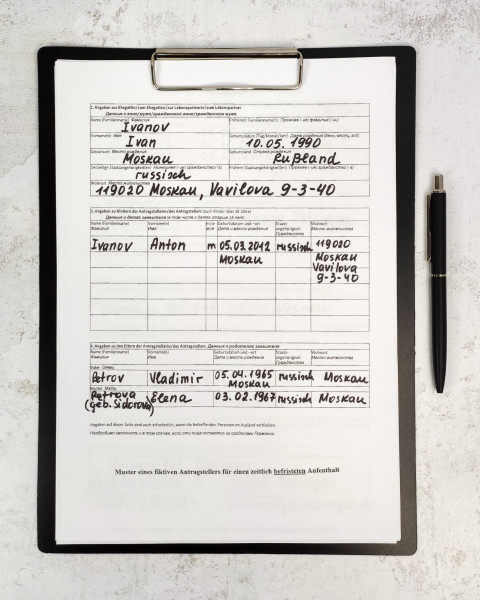 2. Angaben zur Ehegattin/zum Ehegatten/zur Lebenspartnerin/zum Lebenspartner
Данные о жене/муже/гражданской жене/гражданском муже
Name (Familienname) Фамилия
Ivanov
Vorname(n) Имя
Ivan
Geburtsdatum (Tag/Monat/Jahr) Дата рождения (день, месяц, год)
10.05.1990
Geburtsort Место рождения
Moskau
Geburtsland Страна рождения
Rußland
russisch
Wohnort Место жительства
119020 Moskau, Vavilova 9-3-40
3. Angaben zu Kindern der Antragstellerin/des Antragstellers (auch Kinder über 18 Jahre)
Данные о детях заявителя (в том числе о детях старше 18 лет)
Name (Familienname) Фамилия
Vorname(n) Имя
m/w м/ж
Geburtsdatum und -ort Дата и место рождения
Staatsangehörigkeit Гражданство
Wohnort Место жительства
Ivanov Anton m 05.03.2012 Moskau russisch 119020 Moskau Vavilova 9-3-40
4. Angaben zu den Eltern der Antragstellerin/des Antragstellers Данные о родителях заявителя
Name (Familienname) Фамилия
Vorname(n) Имя
Geburtsdatum und -ort Дата и место рождения
Staatsangehörigkeit Гражданство
Wohnort Место жительства
Vater Отец
Petrov Vladimir 05.04.1965 Moskau russisch Moskau
Mutter Мать
Petrova (geb. Sidorova) Elena 03.02.1967 russisch Moskau
Angaben auf dieser Seite sind auch erforderlich, wenn die betreffenden Personen im Ausland verbleiben.
Необходимо заполнить и в том случае, если эти лица остаются за пределами Германии.
Muster eines fiktiven Antragstellers für einen zeitlich befristeten Aufenthalt